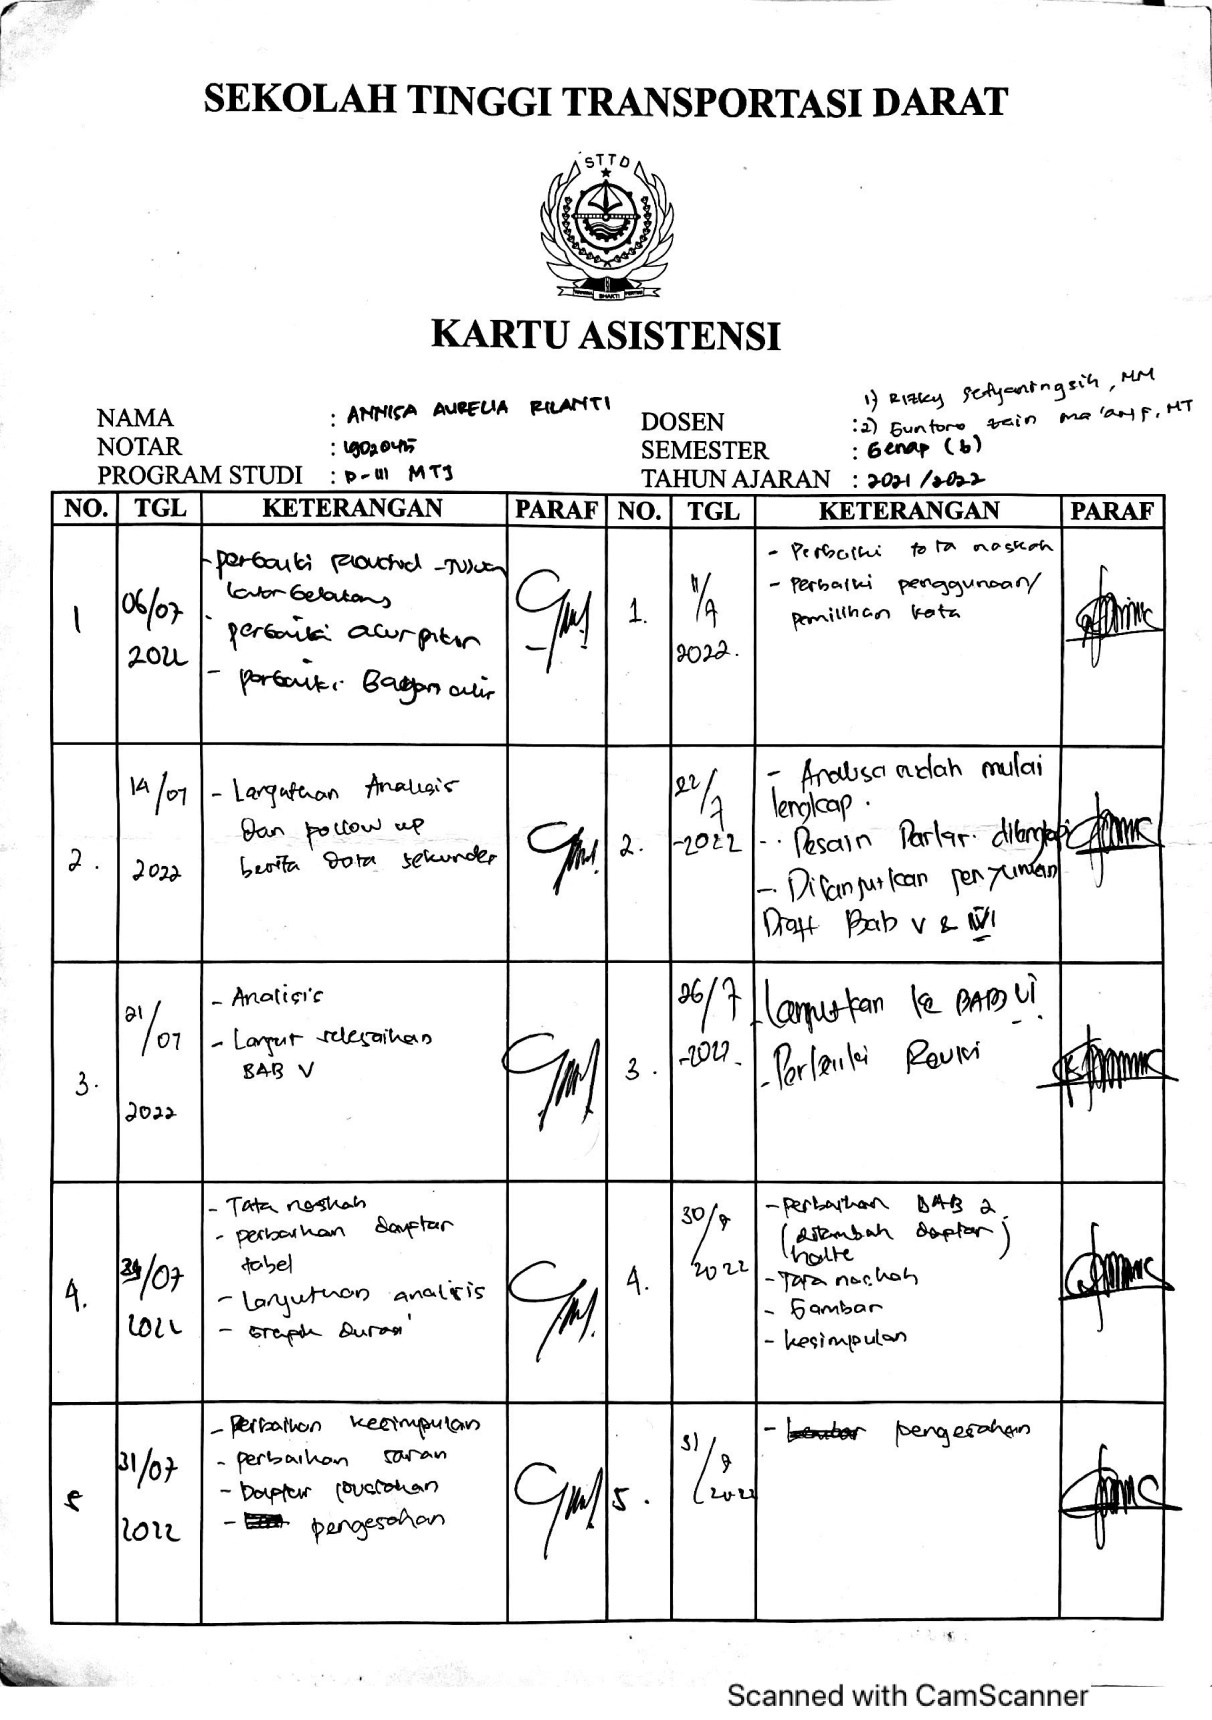 SEKOLAH TINGGI TRANSPORTASI DARAT
STTD
BHAKTI
KARTU ASISTENSI
NAMA : ANNISA AURELIA RILANTI
NOTAR : 1902045
PROGRAM STUDI : D-III MTJ
DOSEN : 1) Rizky Setyaningsih, MM
2) Guntoro Zain Ma'arif, MT
SEMESTER : Genap (6)
TAHUN AJARAN : 2021/2022
NO. TGL KETERANGAN PARAF NO. TGL KETERANGAN PARAF
1 06/07 2022
- perbaiki - Tujuan
Latar belakang
- perbaiki alur pikir
- perbaiki Bagan alir
1. 11/7 2022.
- Perbaiki tata naskah
- Perbaiki penggunaan/
pemilihan kata
2. 14/07 2022
- Lanjutkan Analisis
dan follow up
berita data sekunder
2. 22/7 -2022
- Analisa sudah mulai
lengkap.
- Desain Parkir dilengkapi
- Dilanjutkan penyusunan
Draft Bab V & VI
3. 21/07 2022
- Analisis
- Lanjut selesaikan
BAB V
3. 26/7 -2022.
- Lanjutkan ke BAB VI
- Perbaiki Revisi
4. /07 2022
- Tata naskah
- perbaikan daftar
tabel
- Lanjutkan analisis
- Grapik Durasi
4. 30/7 2022
- perbaikan BAB 2
(ditambah daftar)
halte
- Tata naskah
- Gambar
- kesimpulan
5 31/07 2022
- Perbaikan kesimpulan
- perbaikan saran
- Daftar pustaka
- pengesahan
5. 31/7 2022
- pengesahan
Scanned with CamScanner